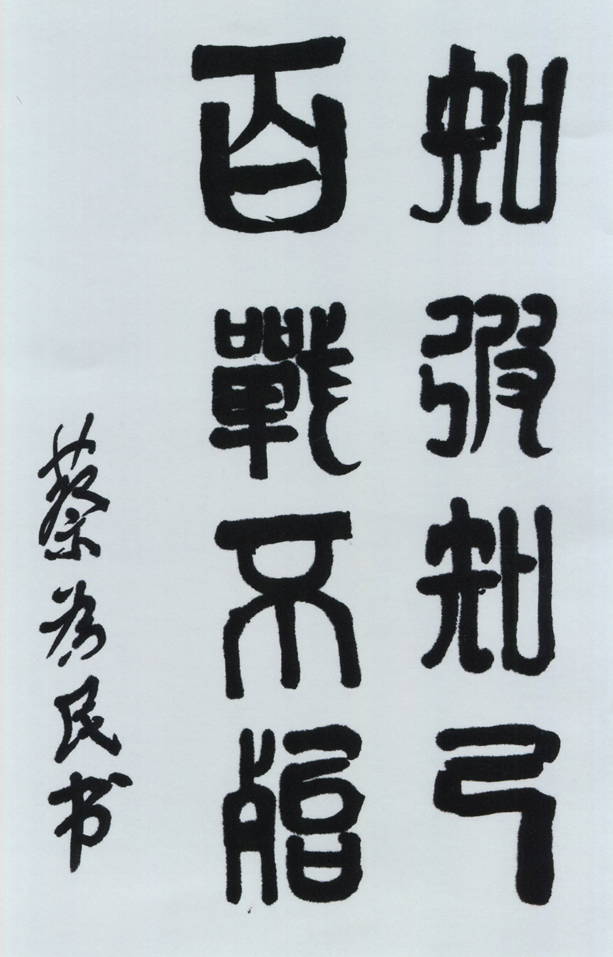 知彼知己
百戰不殆
蔡为民书